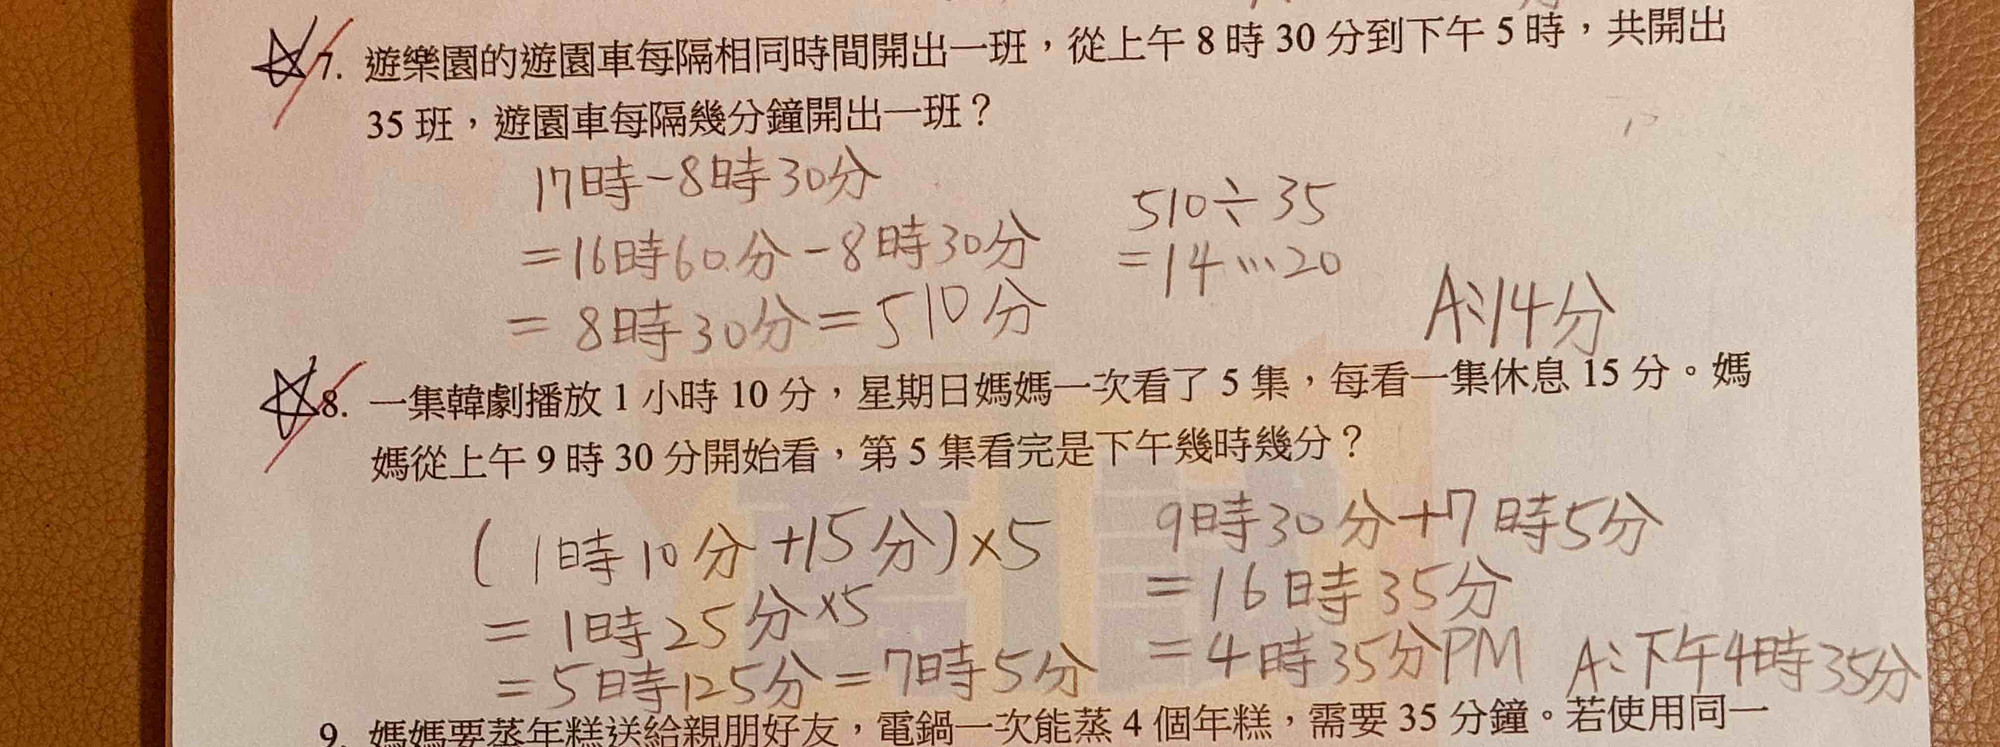 7. 遊樂園的遊園車每隔相同時間開出一班，從上午 8 時 30 分到下午 5 時，共開出
35 班，遊園車每隔幾分鐘開出一班？
17時-8時30分
=16時60分-8時30分
=8時30分=510分
510÷35
=14…20
A:14分
8. 一集韓劇播放 1 小時 10 分，星期日媽媽一次看了 5 集，每看一集休息 15 分。媽
媽從上午 9 時 30 分開始看，第 5 集看完是下午幾時幾分？
(1時10分+15分)×5
=1時25分×5
=5時125分=7時5分
9時30分+7時5分
=16時35分
=4時35分PM
A:下午4時35分
9. 媽媽要蒸年糕送給親朋好友，電鍋一次能蒸 4 個年糕，需要 35 分鐘。若使用同一